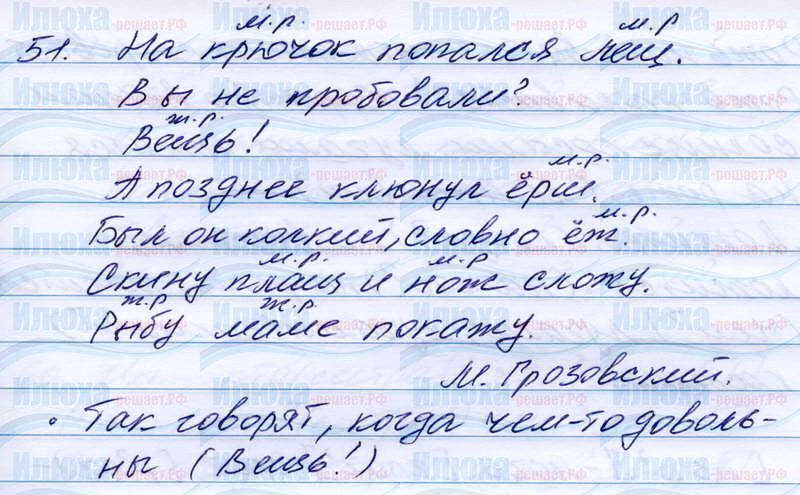 м.р. м.р
51. На крючок попался лещ.
Вы не пробовали?
ж.р.
Вещь!
м.р.
А позднее клюнул ёрш.
м.р.
Был он колкий, словно ёж.
м.р. м.р
Скину плащ и нож сложу.
ж.р ж.р
Рыбу маме покажу.
М. Грозовский.
• Так говорят, когда чем-то доволь-
ны (Вещь!)